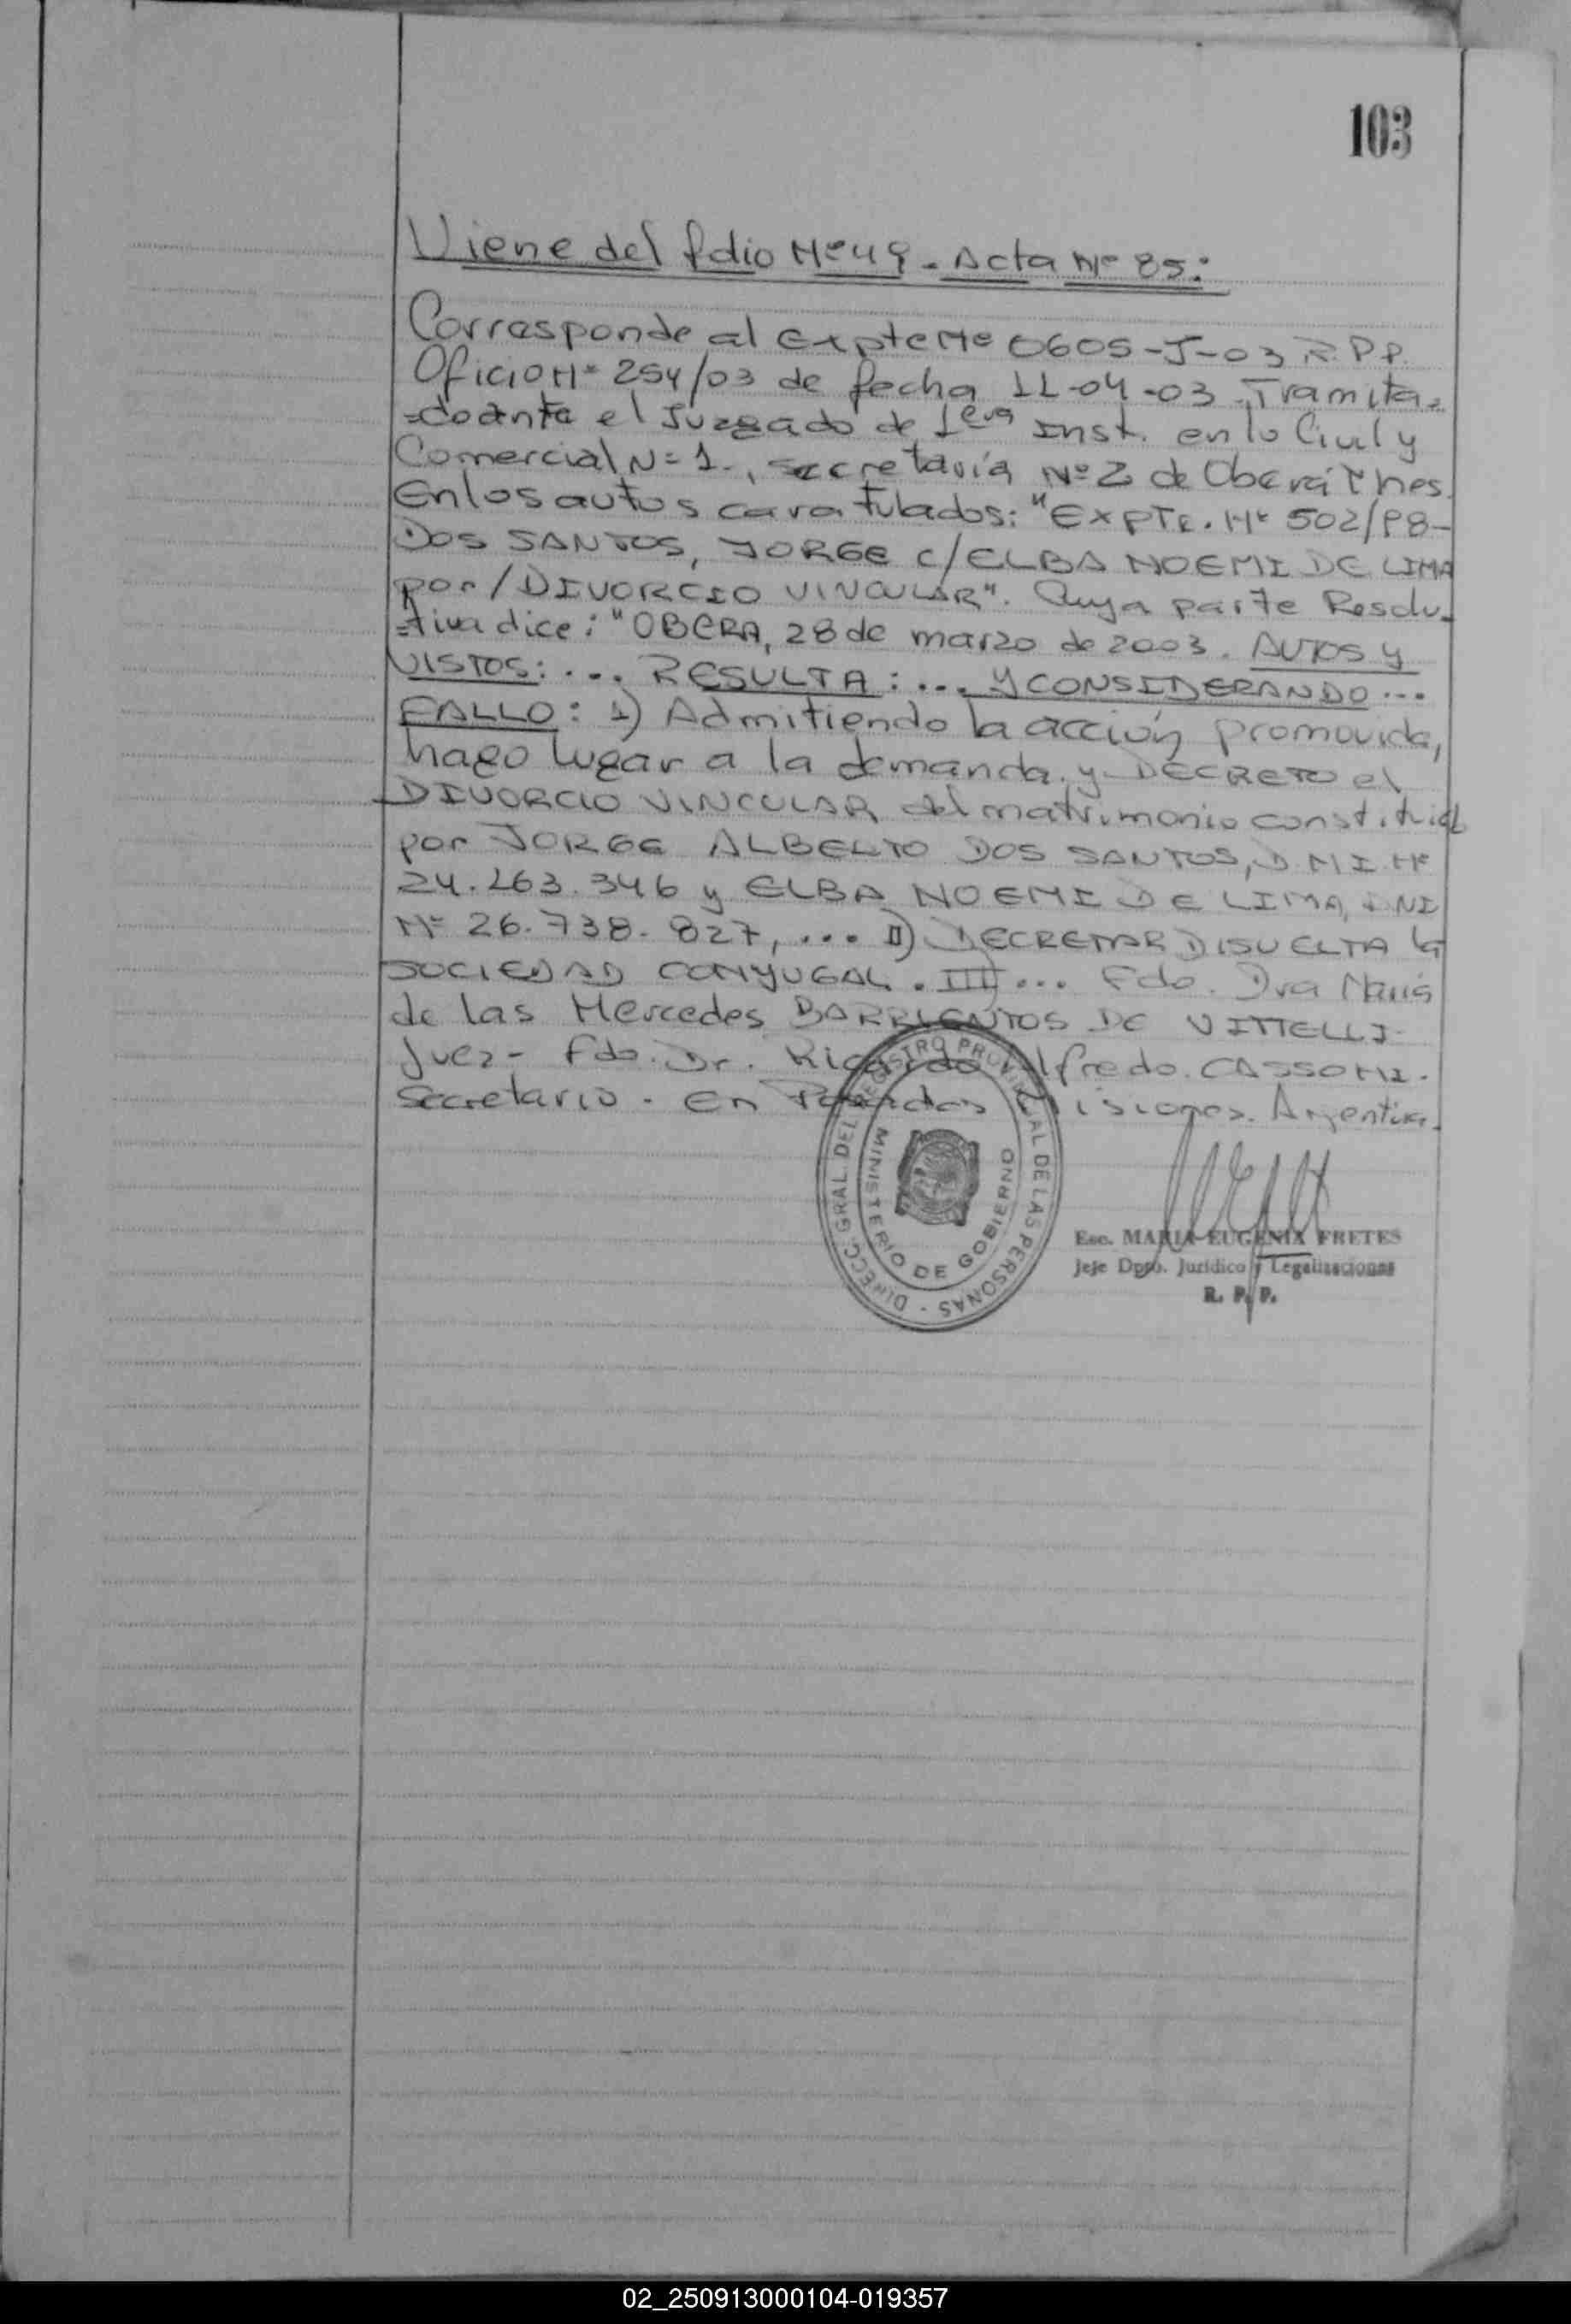 103
Viene del folio Nº 49 - Acta Nº 85:
Corresponde al Expte Nº 0605-J-03 R.P.P.
Oficio Nº 254/03 de fecha 11-04-03. Tramita=
=do ante el Juzgado de 1era Inst. en lo Civil y
Comercial Nº 1., secretaría Nº 2 de Oberá Mnes.
En los autos caratulados: "EXPTE. Nº 502/98-
DOS SANTOS, JORGE C/ELBA NOEMI DE LIMA
por/DIVORCIO VINCULAR". Cuya parte Resolu=
=tiva dice: "OBERA, 28 de marzo de 2003. AUTOS y
VISTOS: ... RESULTA: ... Y CONSIDERANDO ...
FALLO: 1) Admitiendo la acción promovida,
hago lugar a la demanda y DECRETO el
DIVORCIO VINCULAR del matrimonio constituido
por JORGE ALBERTO DOS SANTOS, D.N.I. Nº
24.263.346 y ELBA NOEMI DE LIMA, DNI
Nº 26.738.827, ... II) DECRETAR DISUELTA la
SOCIEDAD CONYUGAL. III) ... Fdo. Dra María
de las Mercedes BARRIENTOS DE VITTELLI-
Juez- Fdo. Dr. Ricardo Alfredo. CASSONI.
Secretario. En Posadas Misiones. Argentina.
DIRECC. GRAL. DEL REGISTRO PROVINCIAL DE LAS PERSONAS -
MINISTERIO DE GOBIERNO
Esc. MARIA EUGENIA FRETES
Jefe Dpto. Jurídico y Legalizaciones
R. P. P.
02_250913000104-019357